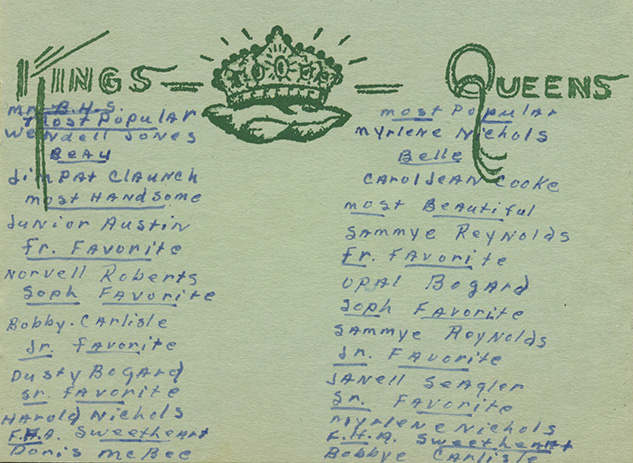 KINGS
QUEENS
Mr. B.H.S.
Most Popular
Wendell Jones
Beau
Jim Pat Claunch
Most Handsome
Junior Austin
Fr. Favorite
Norvell Roberts
Soph Favorite
Bobby Carlisle
Jr. Favorite
Dusty Bogard
Sr. Favorite
Harold Nichols
F.F.A. Sweetheart
Doris McBee
Most Popular
Myrlene Nichols
Belle
Carol Jean Cooke
Most Beautiful
Sammye Reynolds
Fr. Favorite
Opal Bogard
Soph Favorite
Sammye Reynolds
Jr. Favorite
Janell Seagler
Sr. Favorite
Myrlene Nichols
F.H.A. Sweetheart
Bobbye Carlisle